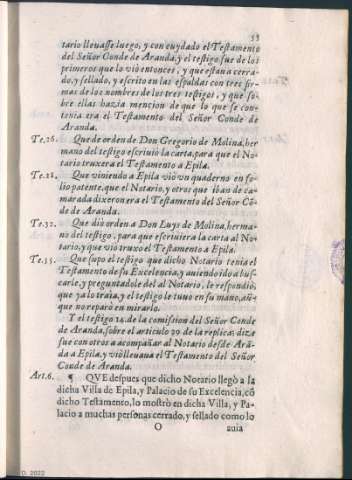 53
tario lleuasse luego, y con cuydado el Testamento
del Señor Conde de Aranda; y el testigo fue de los
primeros que lo viò entonces, y que estaua cerra-
do, y sellado, y escrito en las espaldas con tres fir-
mas de los nombres de los tres testigos, y que so-
bre ellas hazia mencion de que lo que se con-
tenia era el Testamento del Señor Conde de
Aranda.
Te.26. Que de orden de Don Gregorio de Molina, her
mano del testigo escriuiò la carta, para que el No-
tario truxera el Testamento a Epila.
Te.28. Que viniendo a Epila viò vn quaderno en fo
lio patente, que el Notario, y otros que iban de ca-
marada dixeron era el Testamento del Señor Cō
de de Aranda.
Te.32. Que diò orden a Don Luys de Molina, herma-
no del testigo, para que escriuiera la carta al No-
tario, y que viò truxo el Testamento a Epila.
Te.33. Que supo el testigo que dicho Notario tenia el
Testamento de su Excelencia, y auiendo ido a bus-
carle, y preguntadole del al Notario, le respondiò
que ya lo traia, y el testigo le tuuo en su mano, aũ-
que no reparò en mirarlo.
Y el testigo 14. de la comision del Señor Conde
de Aranda, sobre el articulo 29 de la replica; dize
fue con otros a acompañar al Notario desde Arā-
da a Epila, y viò lleuaua el Testamento del Señor
Conde de Aranda.
Art.6. ¶ QVE despues que dicho Notario llegò a la
dicha Villa de Epila, y Palacio de su Excelencia, cō
dicho Testamento, lo mostrò en dicha Villa, y Pa-
lacio a muchas personas cerrado, y sellado como lo
O auia
D. 2022